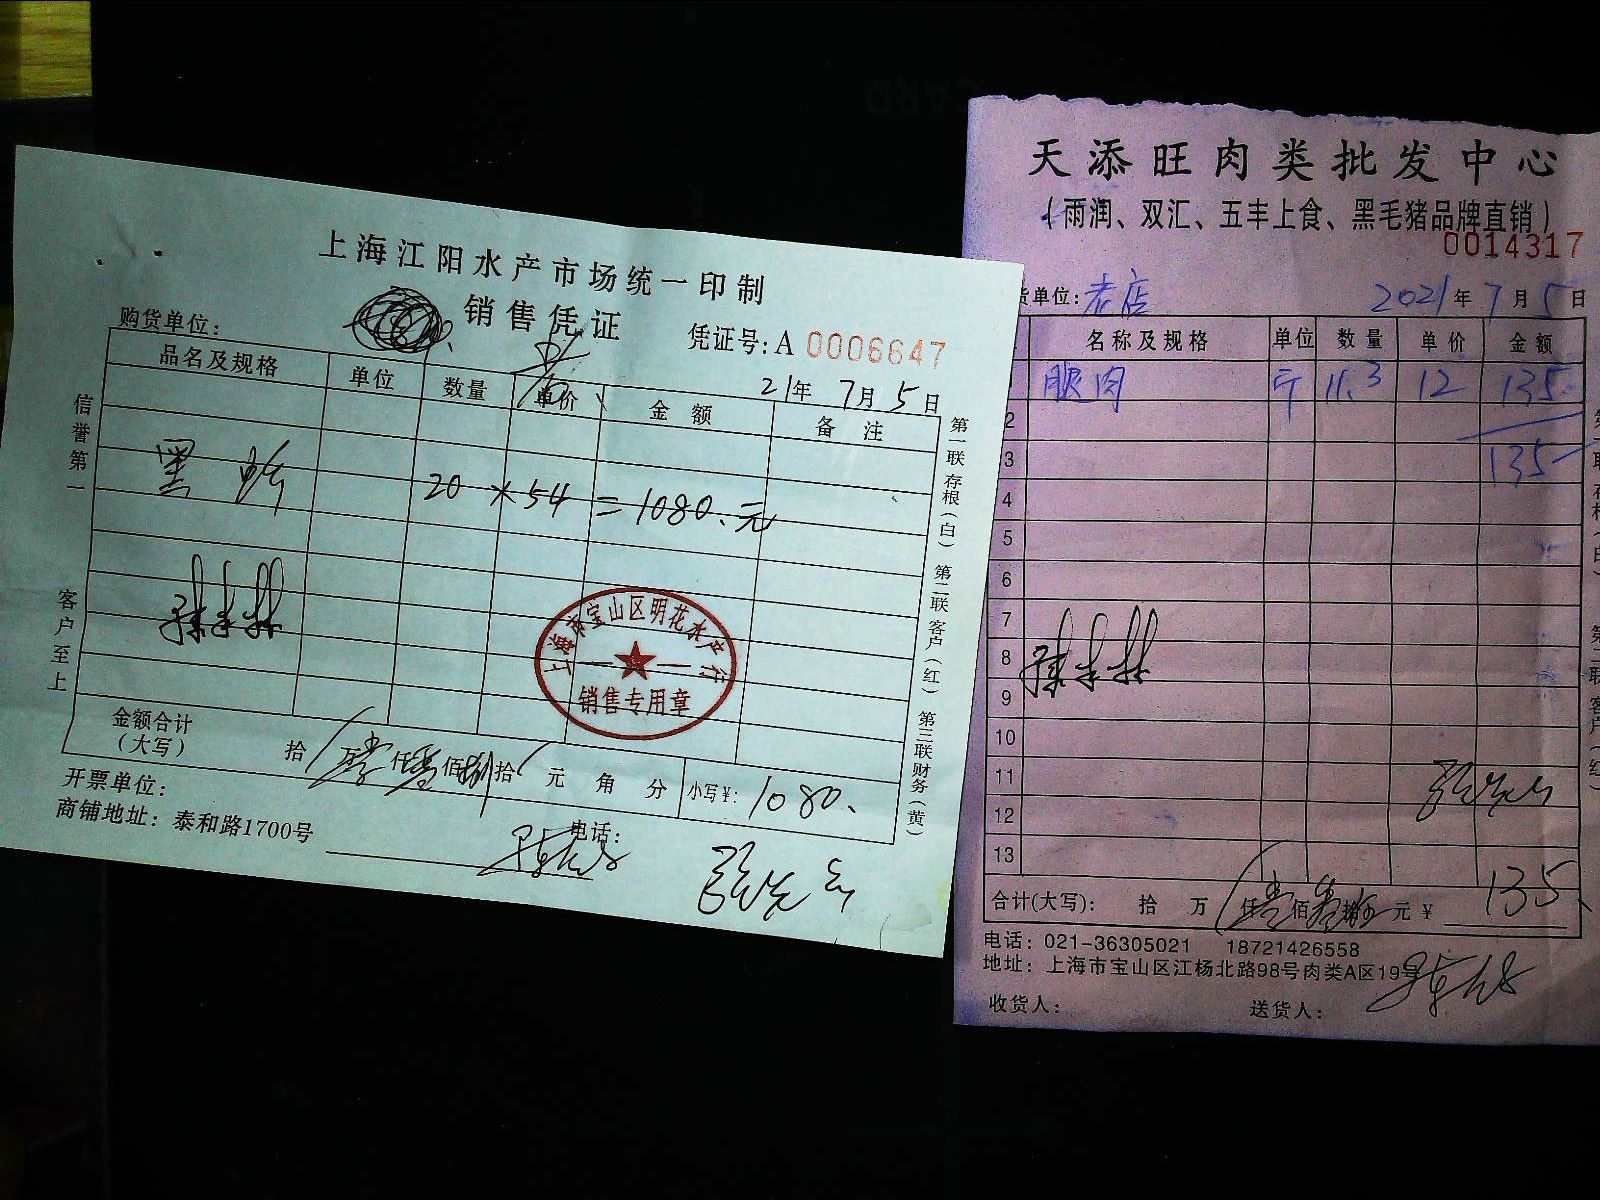 上海江阳水产市场统一印制
销售凭证
购货单位：
凭证号：A 0006647
21年 7月 5日
品名及规格 单位 数量 单价 金额 备注
20 * 54 = 1080.元
信誉第一
客户至上
上海市宝山区明花水产行
销售专用章
金额合计
（大写）
拾 万壹仟零佰捌拾 元 角 分 小写¥: 1080.
开票单位：
商铺地址：泰和路1700号
电话：
第一联存根（白） 第二联客户（红） 第三联财务（黄）
天添旺肉类批发中心
（雨润、双汇、五丰上食、黑毛猪品牌直销）
0014317
货单位：老店 2021年 7月 5日
名称及规格 单位 数量 单价 金额
腿肉 斤 11.3 12 135
2
3 135
4
5
6
7
8
9
10
11
12
13
合计(大写)： 拾 万 仟壹佰叁拾 元 ¥ 135.
电话：021-36305021 18721426558
地址：上海市宝山区江杨北路98号肉类A区19号
收货人： 送货人：